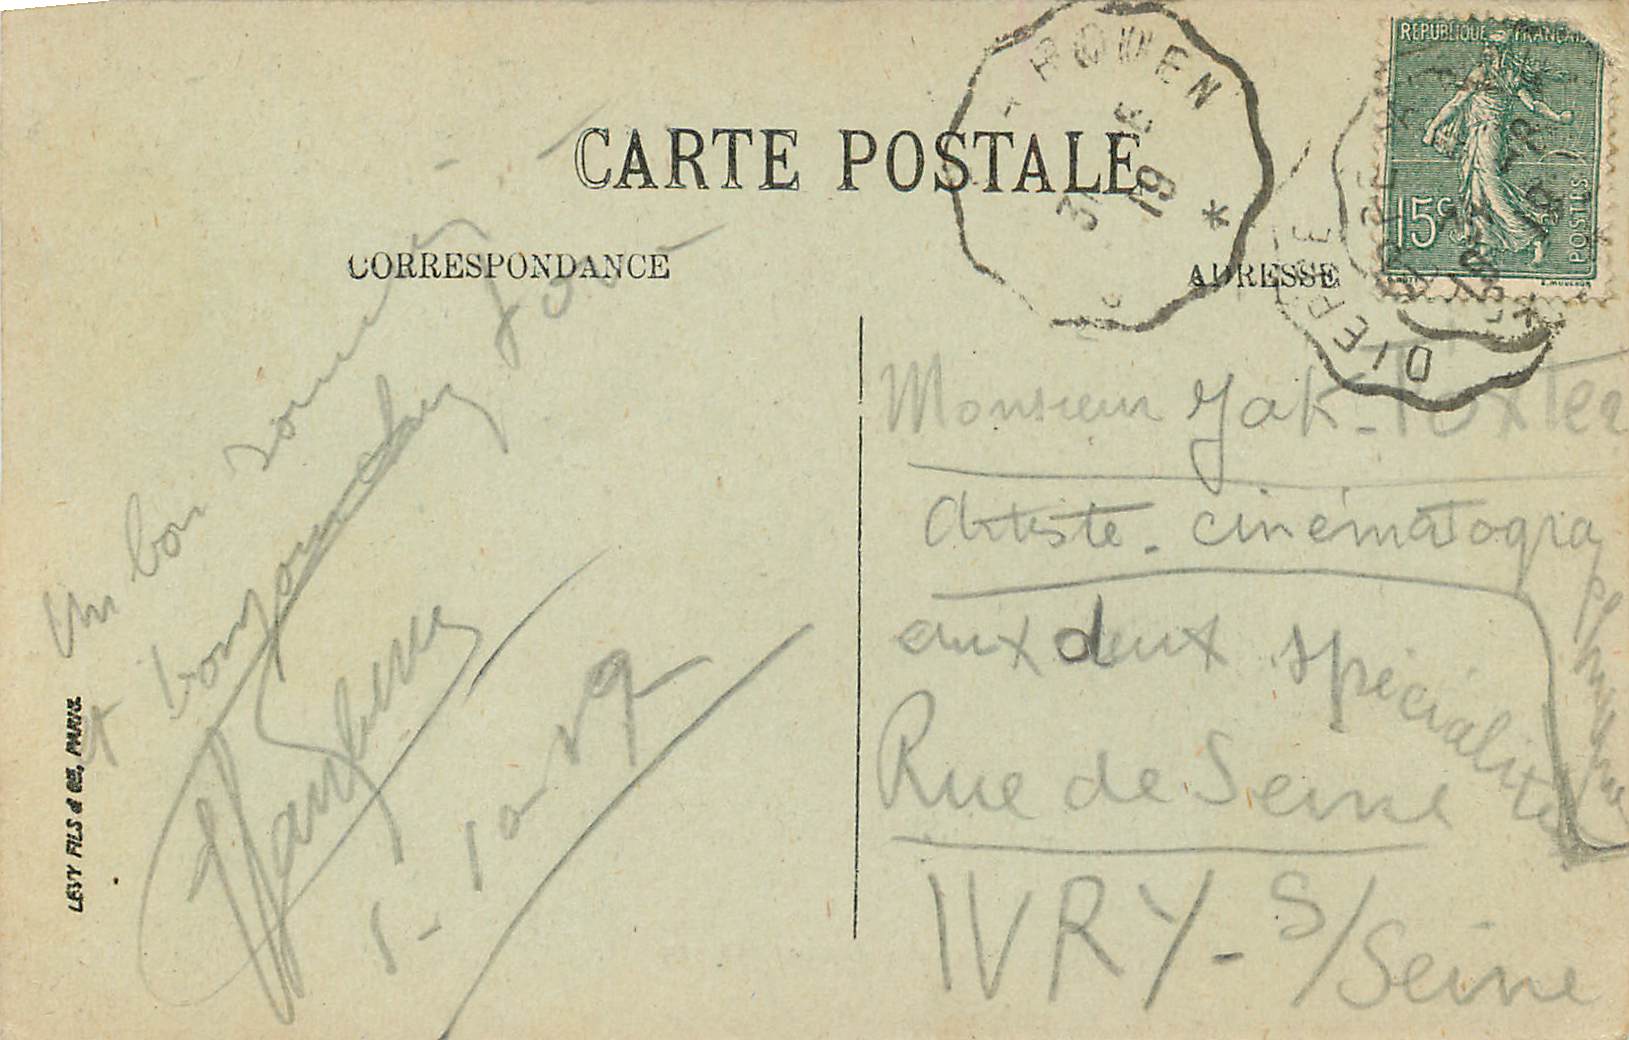 CARTE POSTALE
CORRESPONDANCE
ADRESSE
ROUEN
19
*
DIEPPE
REPUBLIQUE FRANÇAISE
15c
POSTES
LEVY FILS & Cie, PARIS.
Un bon souvenir
et bonjour
5-10-19
Monsieur Jak-
Artiste - cinématographique
aux deux spécialités
Rue de Seine
IVRY - S/Seine